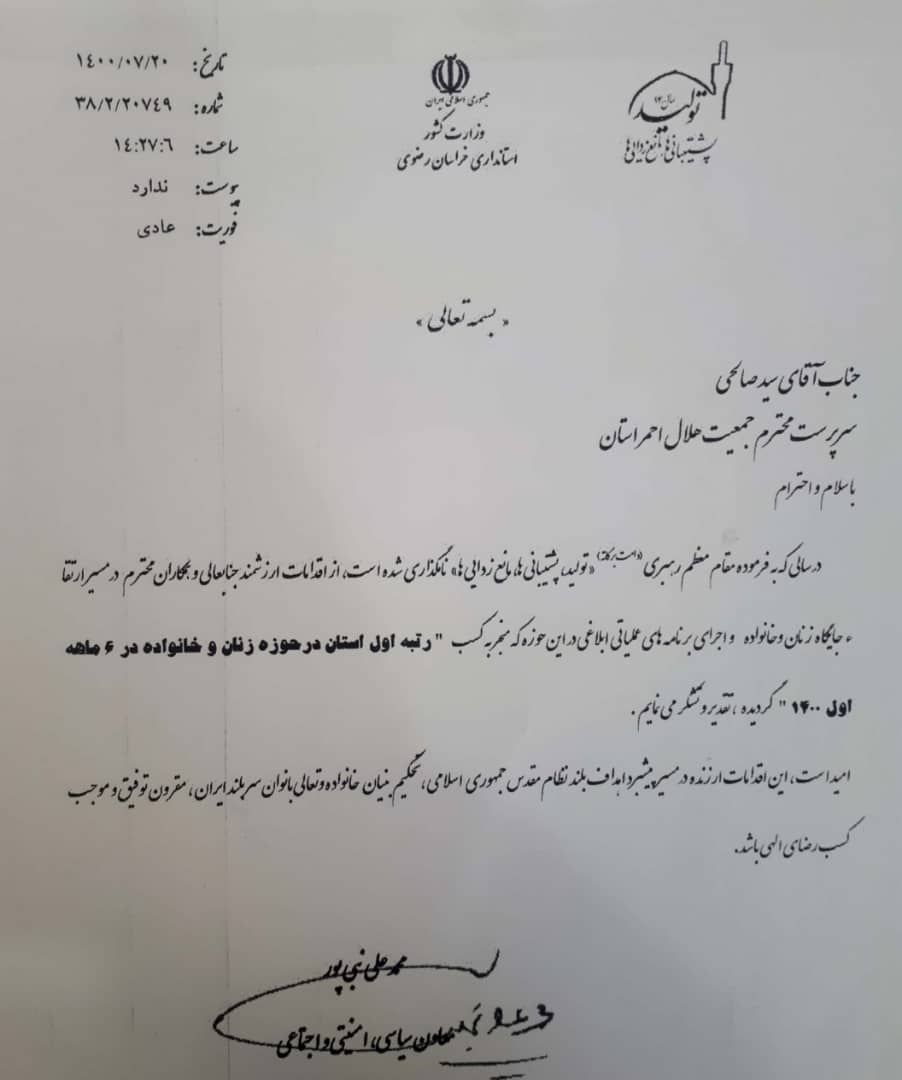 تاریخ: ۱٤۰۰/۰۷/۲۰
شماره: ۳۸/۲/۲۰۷٤۹
ساعت: ۱٤:۲۷:٦
پیوست: ندارد
فوریت: عادی
جمهوری اسلامی ایران
وزارت کشور
استانداری خراسان رضوی
سال ۱۴۰۰
تولید
پشتیبانی‌ها، مانع‌زدایی‌ها
« بسمه تعالی »
جناب آقای سید صالحی
سرپرست محترم جمعیت هلال احمر استان
با سلام و احترام
در سالی که به فرموده مقام معظم رهبری (دامت برکاته) «تولید، پشتیبانی ها، مانع زدایی ها» نامگذاری شده است، از اقدامات ارزشمند جنابعالی و همکاران محترم در مسیر ارتقا
ء جایگاه زنان و خانواده و اجرای برنامه های عملیاتی ابلاغی در این حوزه که منجر به کسب " رتبه اول استان در حوزه زنان و خانواده در ۶ ماهه
اول ۱۴۰۰ " گردیده ، تقدیر و تشکر می نمایم .
امید است، این اقدامات ارزنده در مسیر پیشبرد اهداف بلند نظام مقدس جمهوری اسلامی، تحکیم بنیان خانواده و تعالی بانوان سربلند ایران ، مقرون توفیق و موجب
کسب رضای الهی باشد.
محمد علی نبی پور
معاون سیاسی، امنیتی و اجتماعی